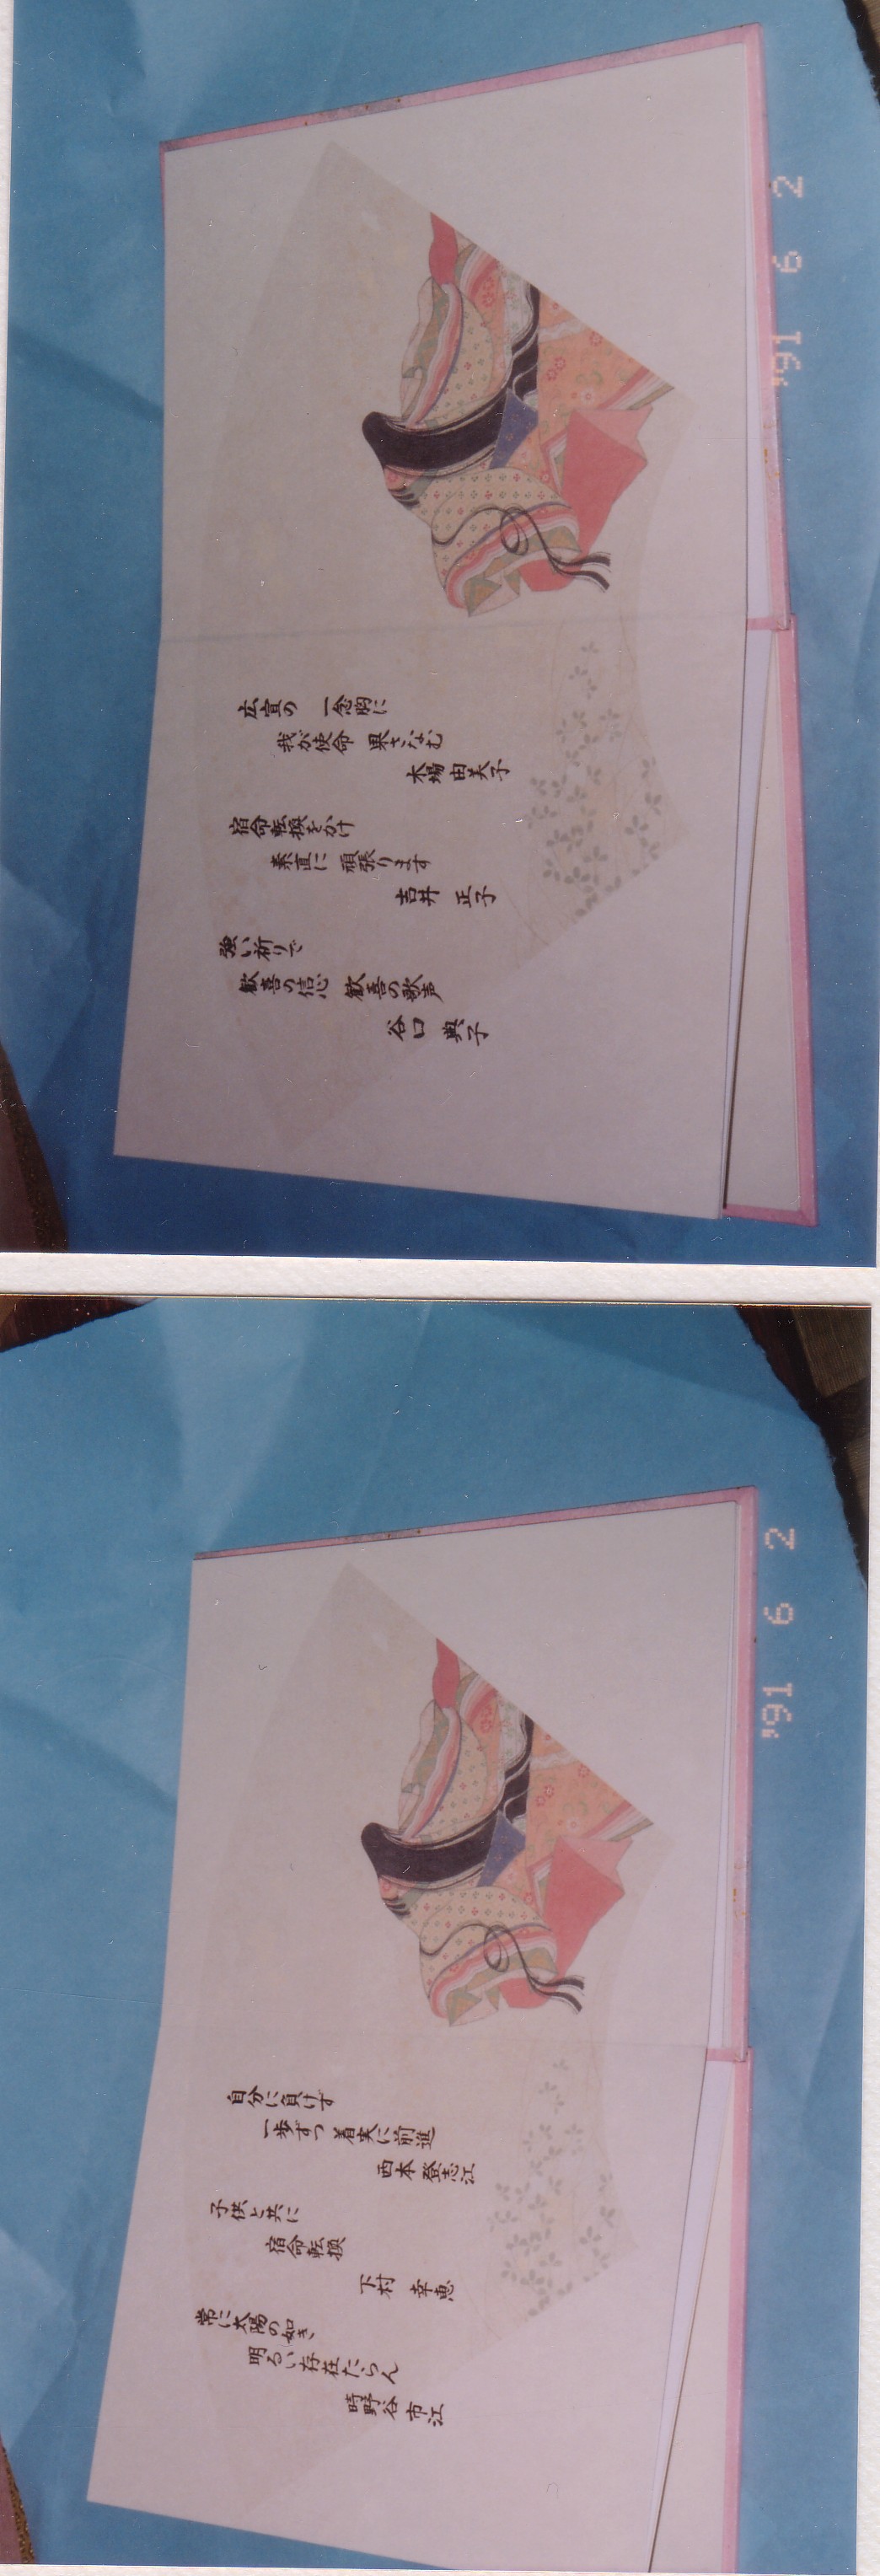 '91 6 2
広宣の 一念胸に
我が使命 果さなむ
木場 由美子
宿命転換をかけ
素直に 頑張ります
吉井 正子
強い祈りで
歓喜の信心 歓喜の歌声
谷口 典子
'91 6 2
自分に負けず
一歩ずつ 着実に前進
西本 登志江
子供と共に
宿命転換
下村 幸恵
常に太陽の如き
明るい存在たらん
時野谷市江